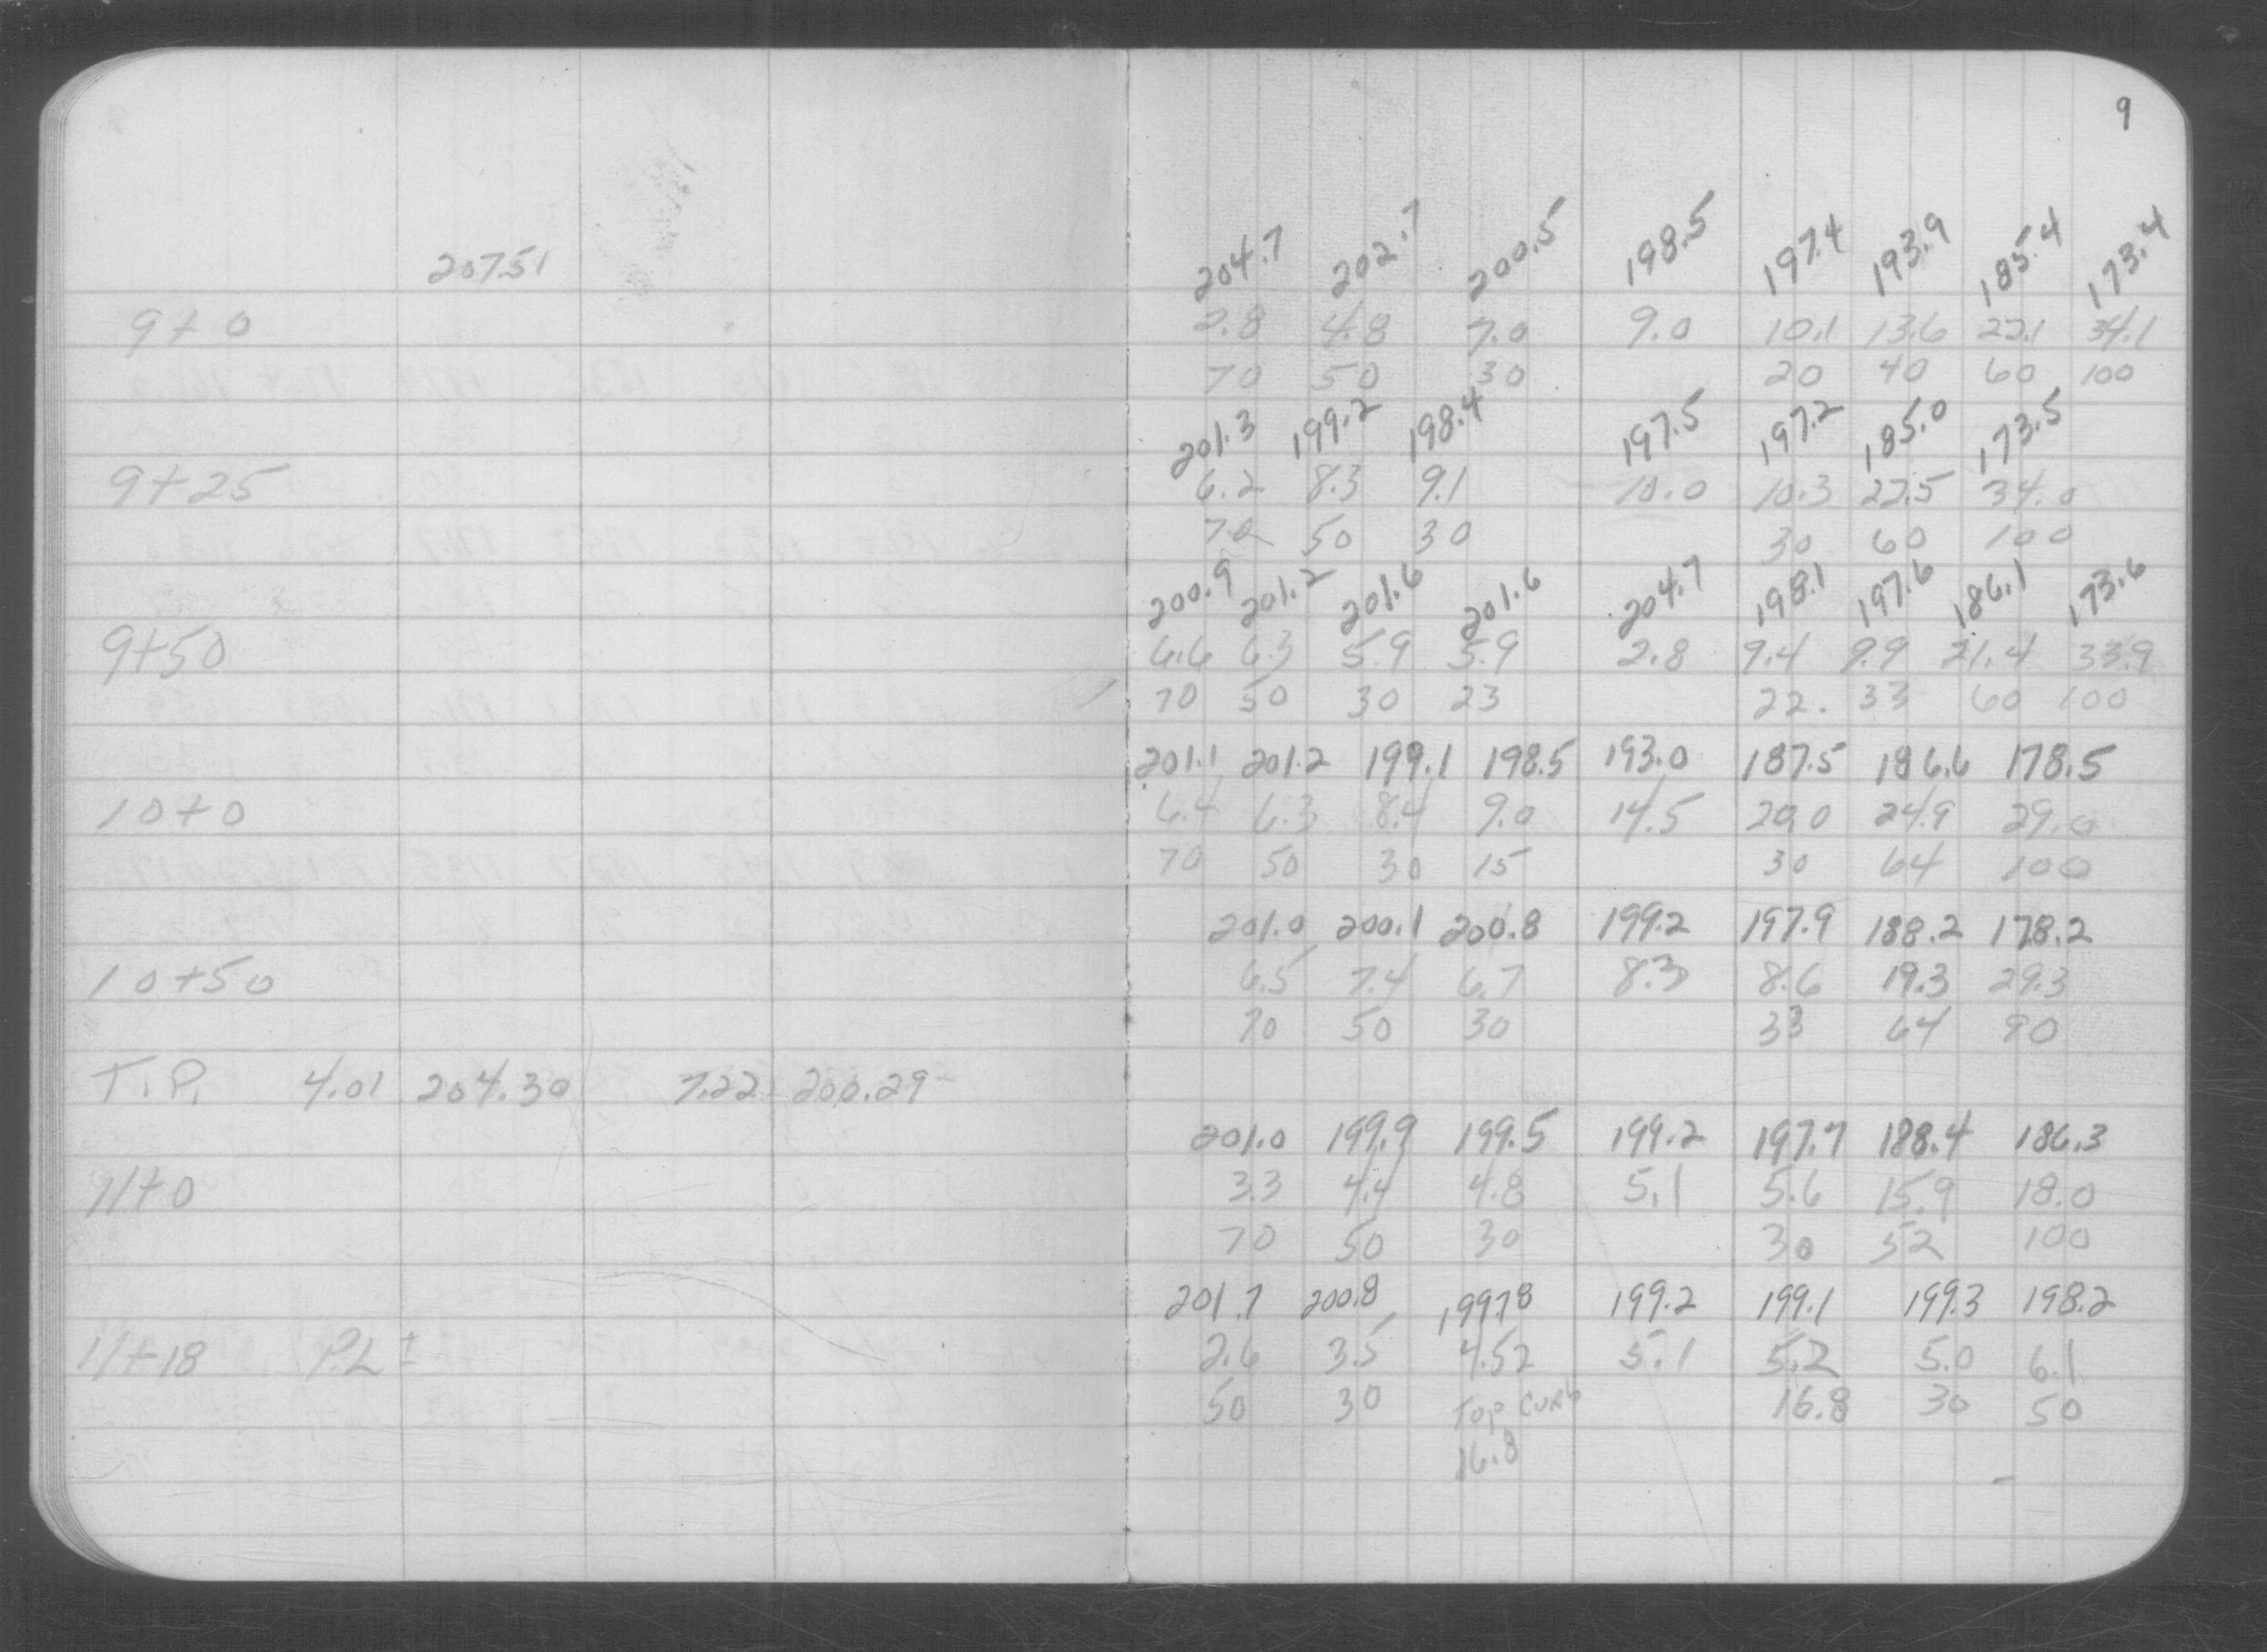 9
207.51 204.7 202.7 200.5 198.5 197.4 193.9 185.4 173.4
9+0 2.8 4.8 7.0 9.0 10.1 13.6 22.1 34.1
70 50 30 20 40 60 100
201.3 199.2 198.4 197.5 197.2 185.0 173.5
9+25 6.2 8.3 9.1 10.0 10.3 22.5 34.0
70 50 30 30 60 100
200.9 201.2 201.6 201.6 204.7 198.1 197.6 186.1 173.6
9+50 6.6 6.3 5.9 5.9 2.8 9.4 9.9 21.4 33.9
70 50 30 23 22. 33 60 100
201.1 201.2 199.1 198.5 193.0 187.5 186.6 178.5
10+0 6.4 6.3 8.4 9.0 14.5 20.0 24.9 29.0
70 50 30 15 30 64 100
201.0 200.1 200.8 199.2 197.9 188.2 178.2
10+50 6.5 7.4 6.7 8.3 8.6 19.3 29.3
70 50 30 33 64 90
T.P. 4.01 204.30 7.22 200.29
201.0 199.9 199.5 199.2 197.7 188.4 186.3
11+0 3.3 4.4 4.8 5.1 5.6 15.9 18.0
70 50 30 30 52 100
201.7 200.8 199.78 199.2 199.1 199.3 198.2
11+18 P.L ± 2.6 3.5 4.52 5.1 5.2 5.0 6.1
50 30 Top Curb 16.8 30 50
16.8